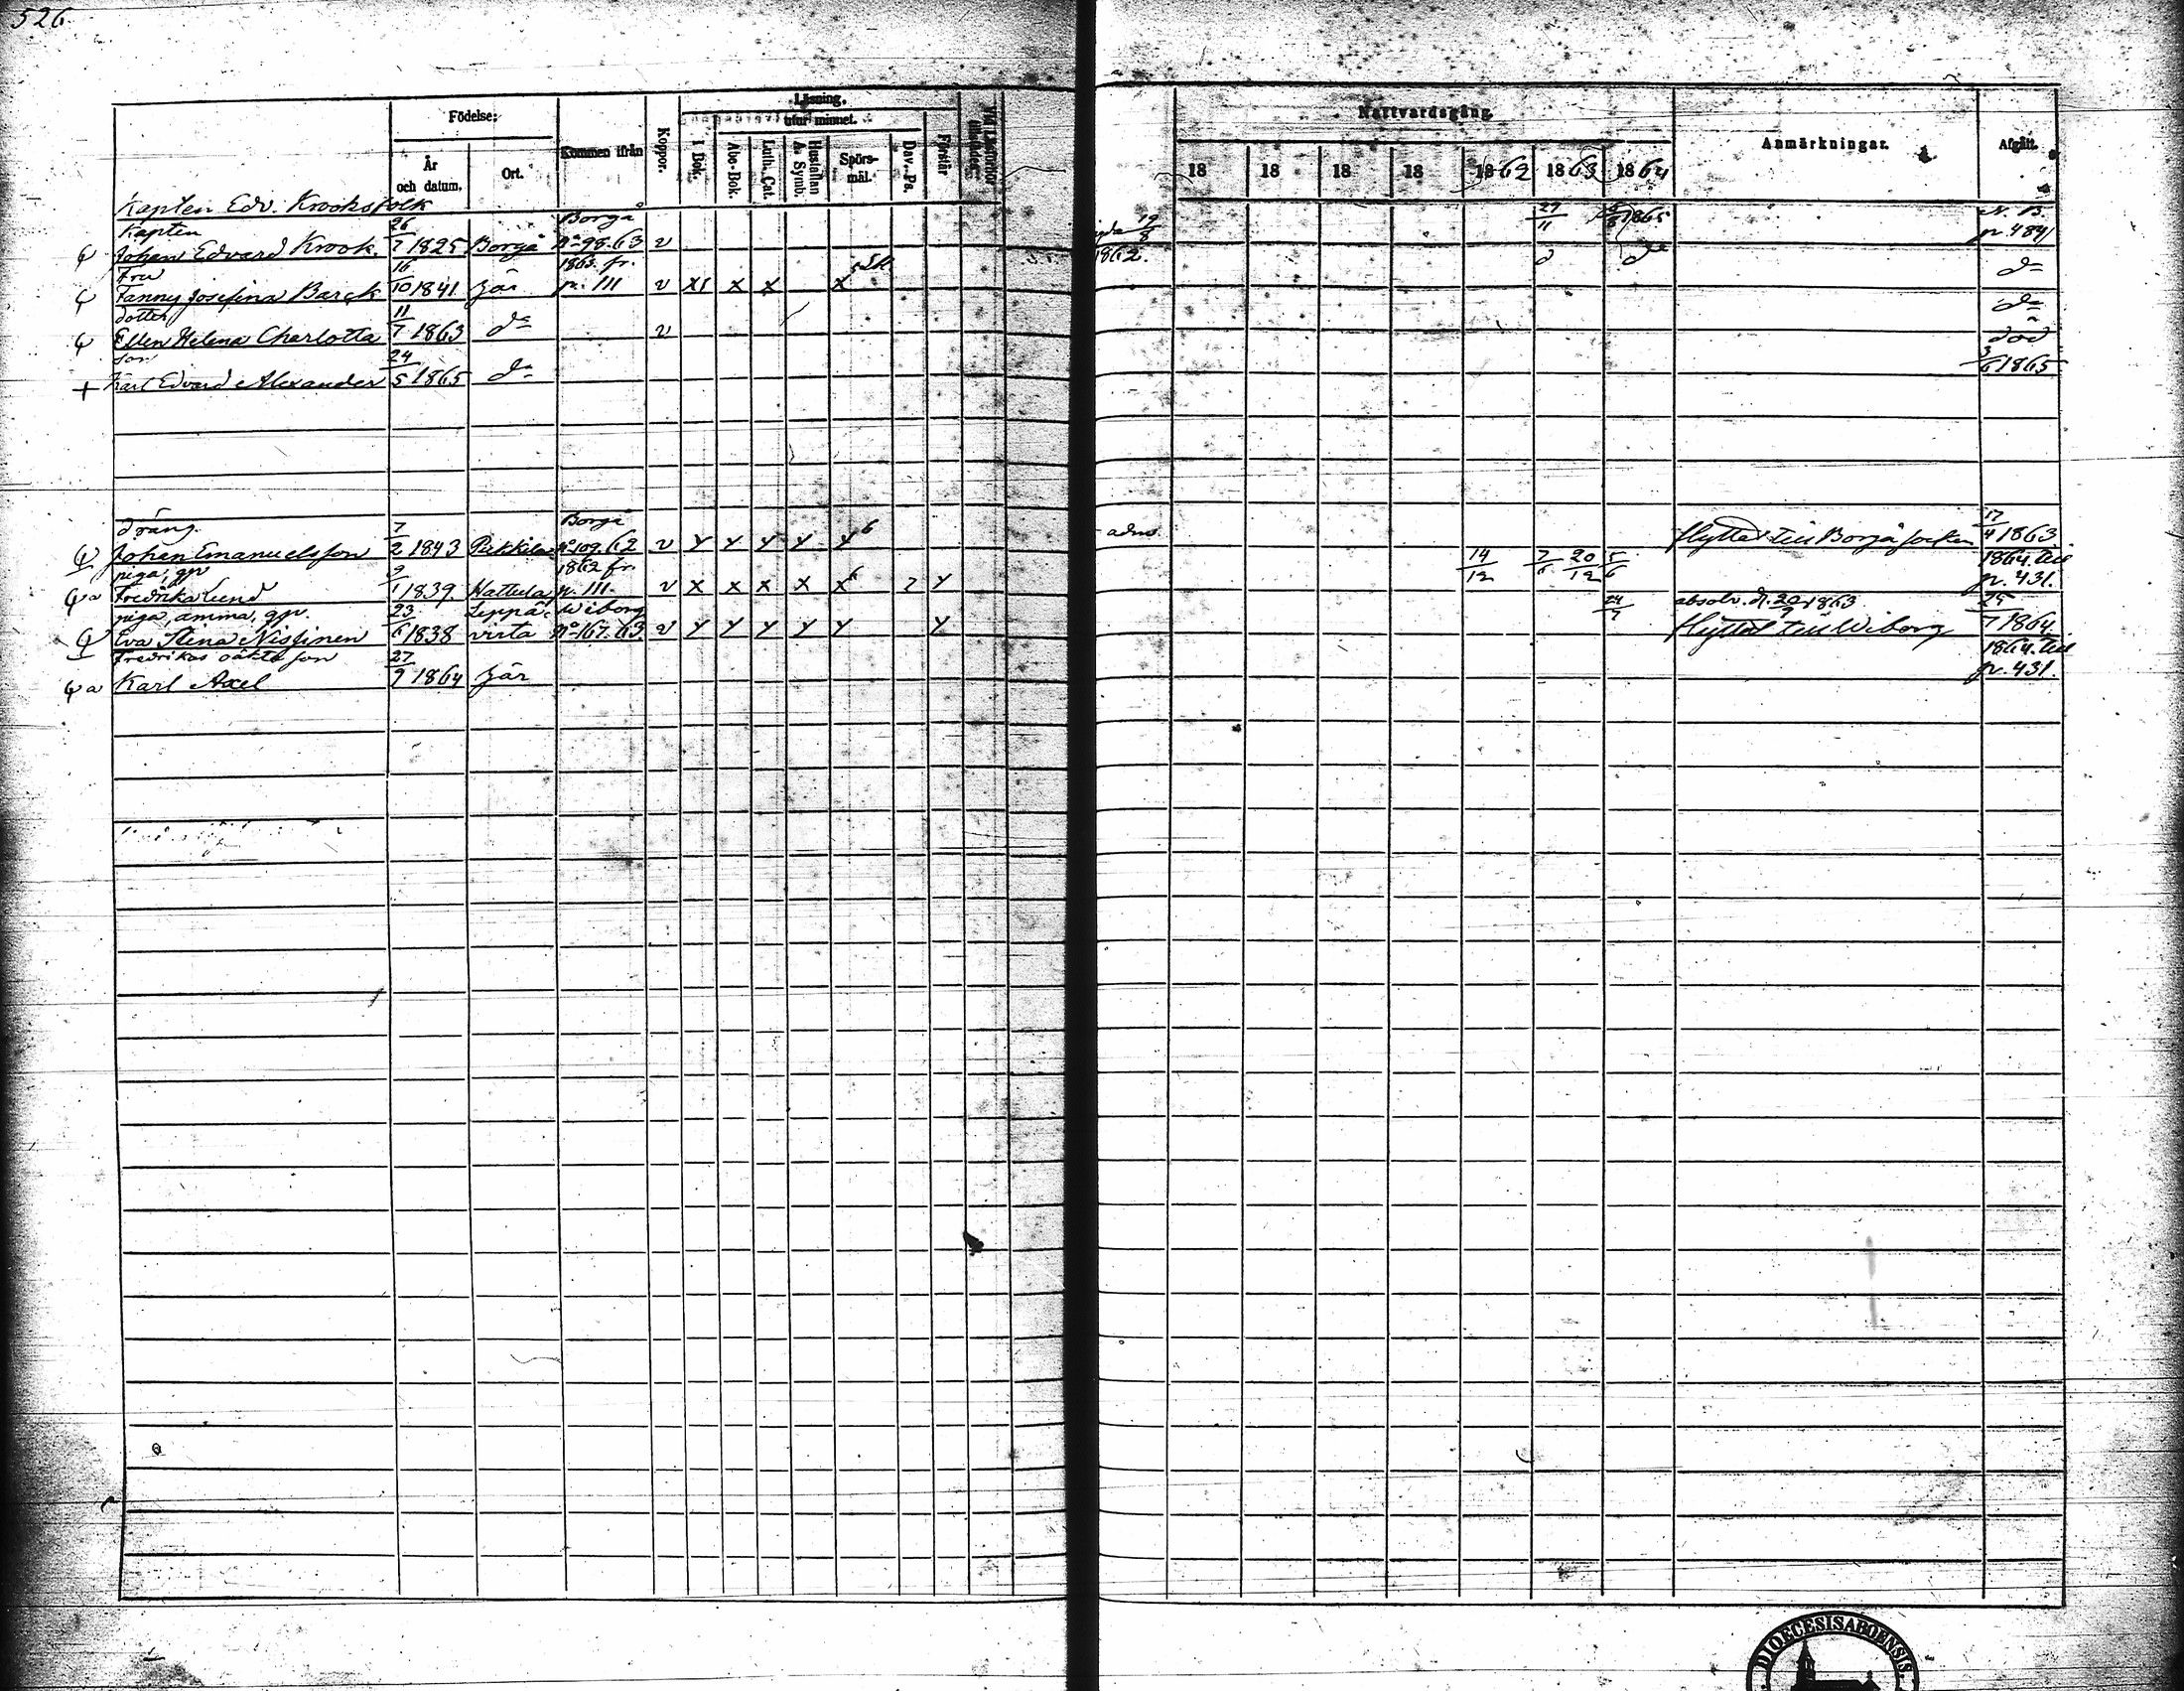 526
Födelse:
År och datum.
Ort.
Kommen ifrån
Koppor.
Läsning.
utur minnet.
I Bok.
Abc-Bok.
Luth. Cat.
Hustaflan
A. Symb.
Spörs-
mål.
Dav. Ps.
Förstår
Nattvardsgång.
18 18 18 18 1862 1863 1864
Anmärkningar.
Afgått.
Kapten Edv. Krooks folk
Kapten
Johan Edvard Krook. 26/7 1825 Borgå Borgå No 98.63 v 19/8 1862. 29/11 1865 N. B. p. 489
Fru
Fanny Josefina Barck 16/10 1841 här 1863. fr. p. 111 v x x x x do
dotter
Ellen Helena Charlotta 11/7 1863 do v do
son
+ Karl Edvard Alexander 24/5 1865 do död 3/6 1865
dräng
Johan Emanuelsson 7/2 1843 Borgå No 109.62 v y y y y y 6 adm. flyttat till Borgå socken 17/4 1863
piga, gp
a Fredrika Lund 2/1 1839 Hattula 1862 fr. p. 111. v x x x x x 6 y 14/12 7/6 20/12 5/6 1864. till p. 431.
piga, amma, gp.
Eva Stina Nissinen 23/6 1838 Leppä-
virta Wiborg No 167.63 v y y y y y y 24/7 absolv. d. 20/9 1863
flyttat till Wiborg 25/7 1864.
Fredrikas oäkta son
a Karl Axel 27/9 1864 här 1864. till p. 431.
DIOECESIS ABOENSIS.